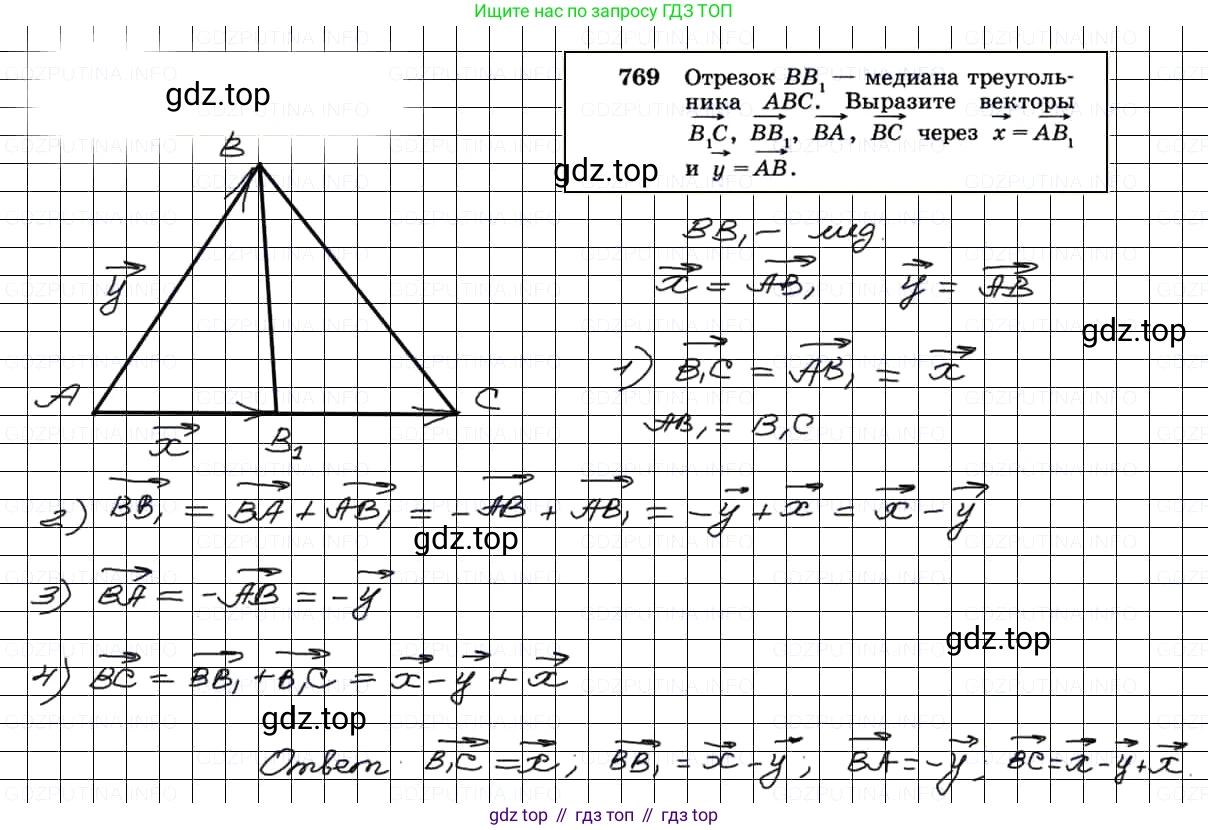 Ищите нас по запросу ГДЗ ТОП
gdz.top
769 Отрезок BB₁ — медиана треуголь-
ника ABC. Выразите векторы
B₁C, BB₁, BA, BC через x = AB₁
и y = AB.
gdz.top
B
y
A
x
B₁
C
BB₁ – мед.
x = AB₁ y = AB
gdz.top
1) B₁C = AB₁ = x
AB₁ = B₁C
2) BB₁ = BA + AB₁ = -AB + AB₁ = -y + x = x - y
gdz.top
3) BA = -AB = -y
gdz.top
4) BC = BB₁ + B₁C = x - y + x
gdz.top
Ответ: B₁C = x; BB₁ = x - y; BA = -y; BC = x - y + x.
gdz top // гдз топ // gdz top
GDZPUTINA.INFO